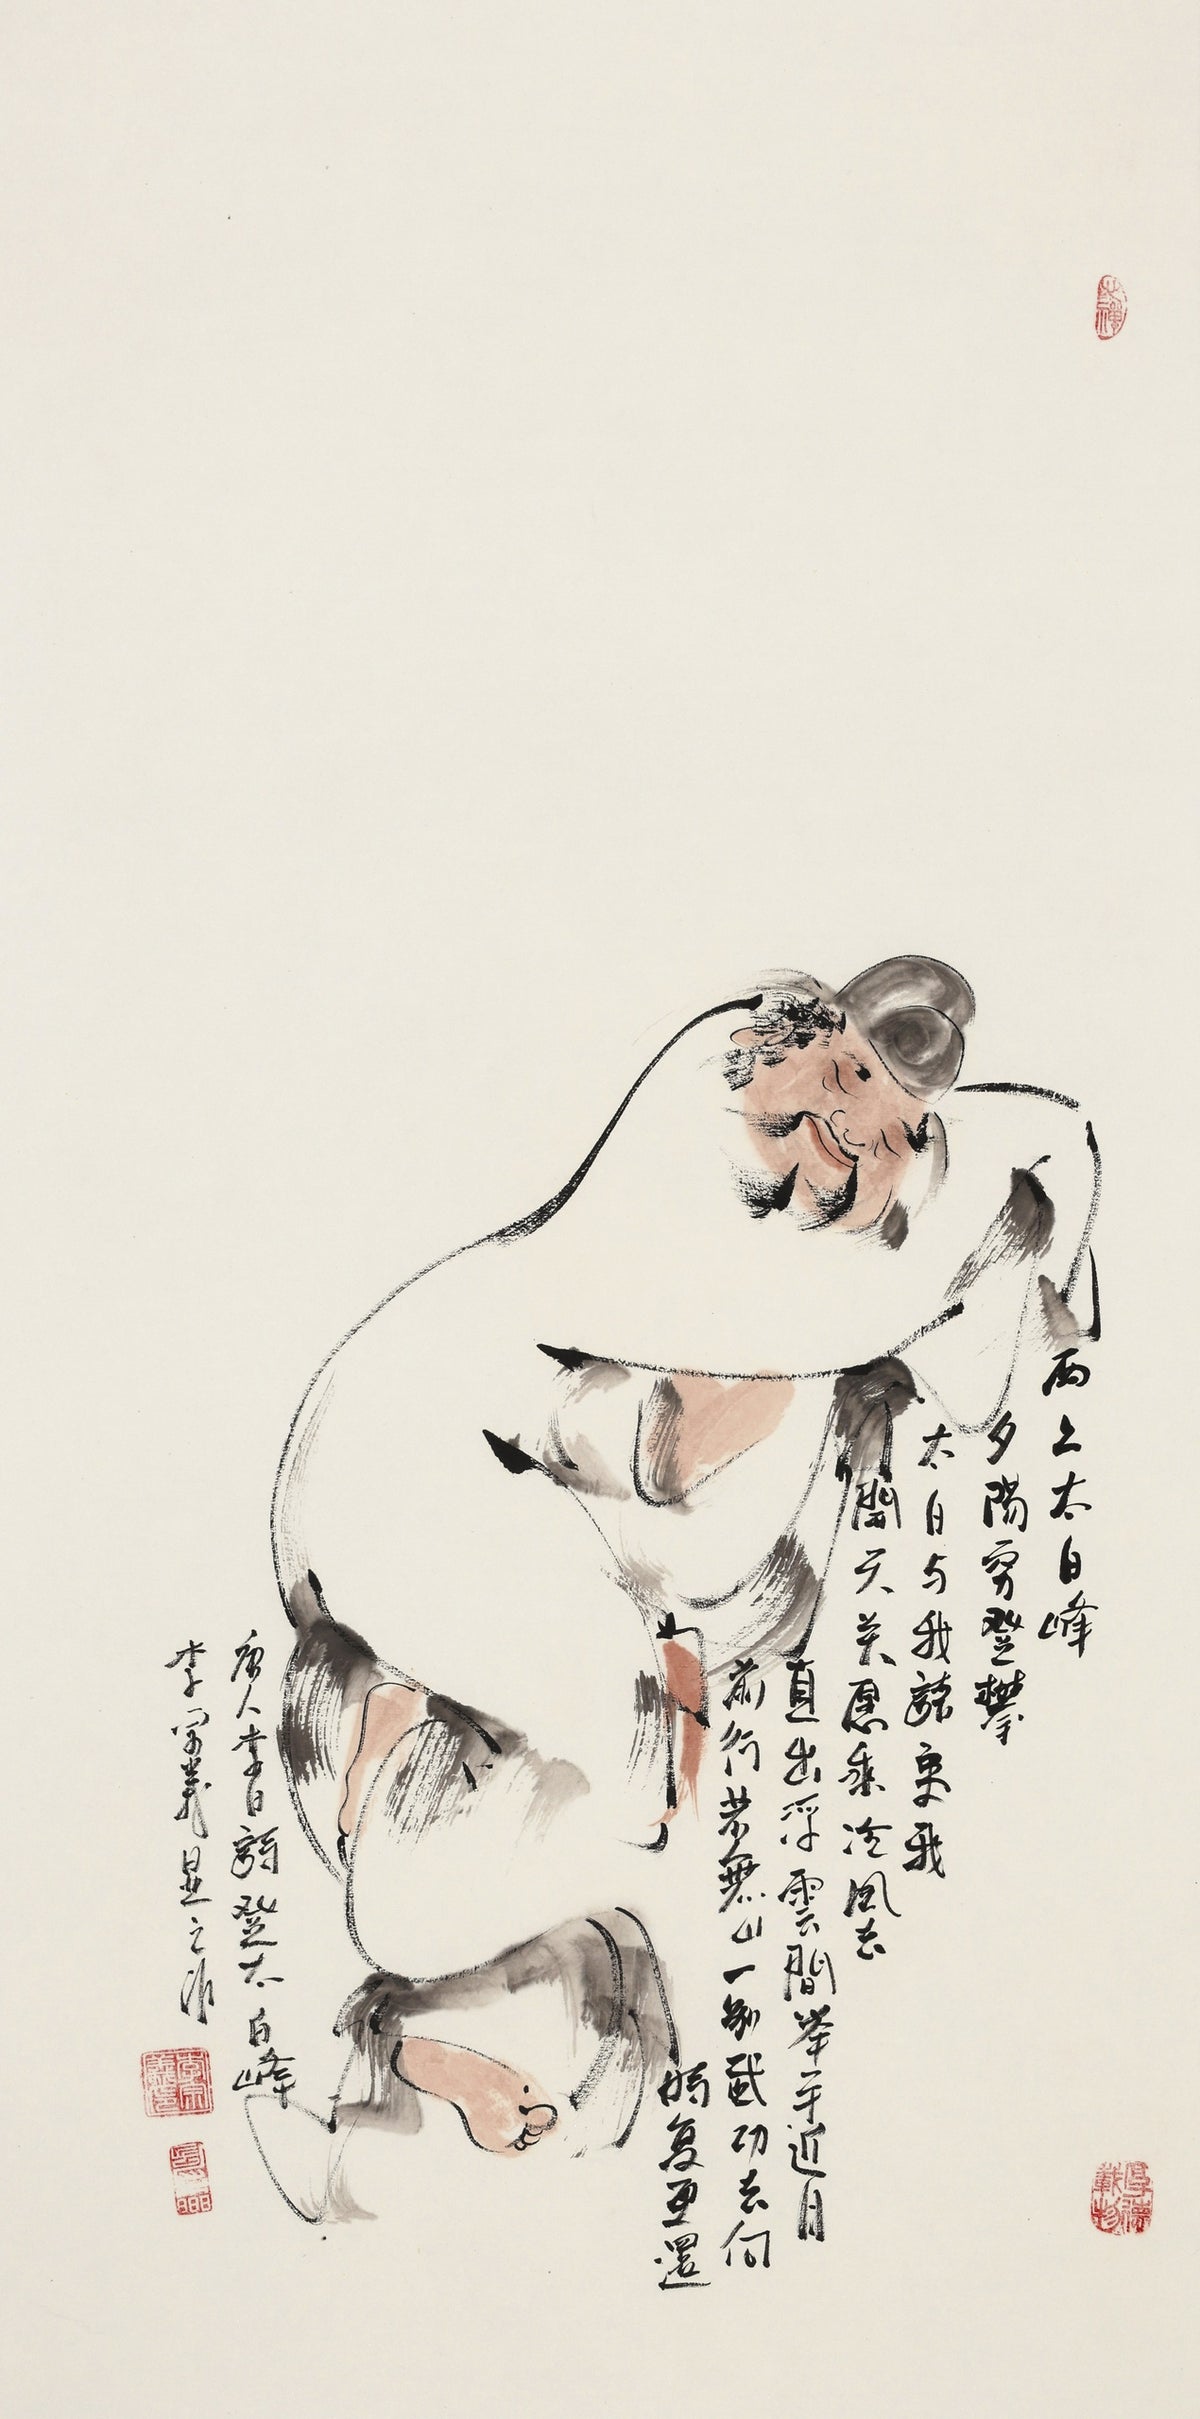 西上太白峰
夕陽窮登攀
太白与我語為我
開天关愿乘冷風去
直出浮雲間举手近月
前行若無山一别武功去何
時复更還
唐人李白詩登太白峰
李
厚德載物